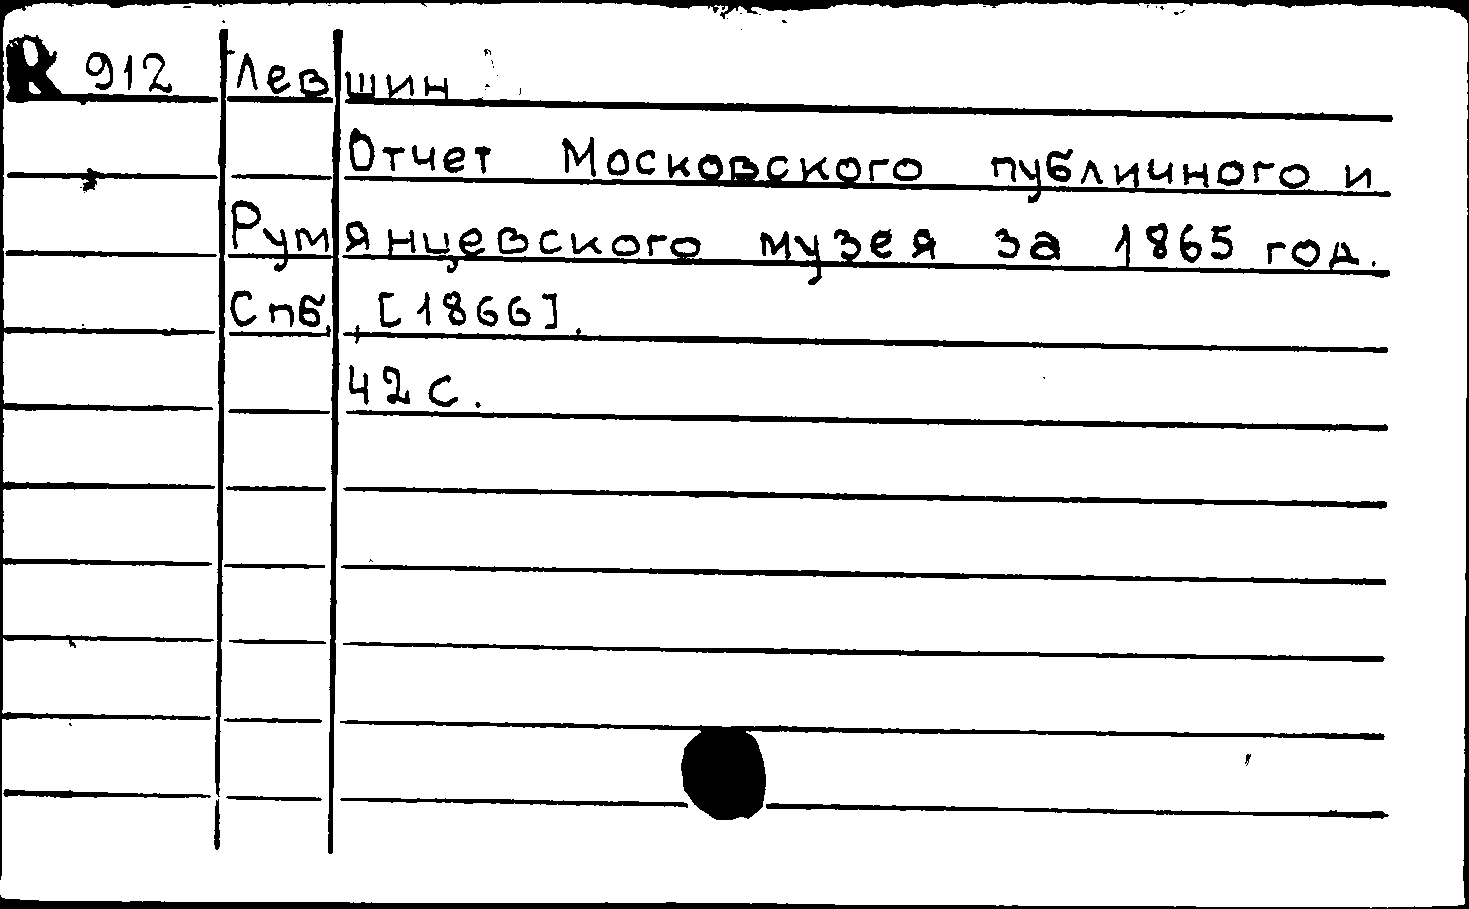 R 912 Левшин
Отчет Московского публичного и
Румянцевского музея за 1865 год.
Спб., [1866].
42 с.